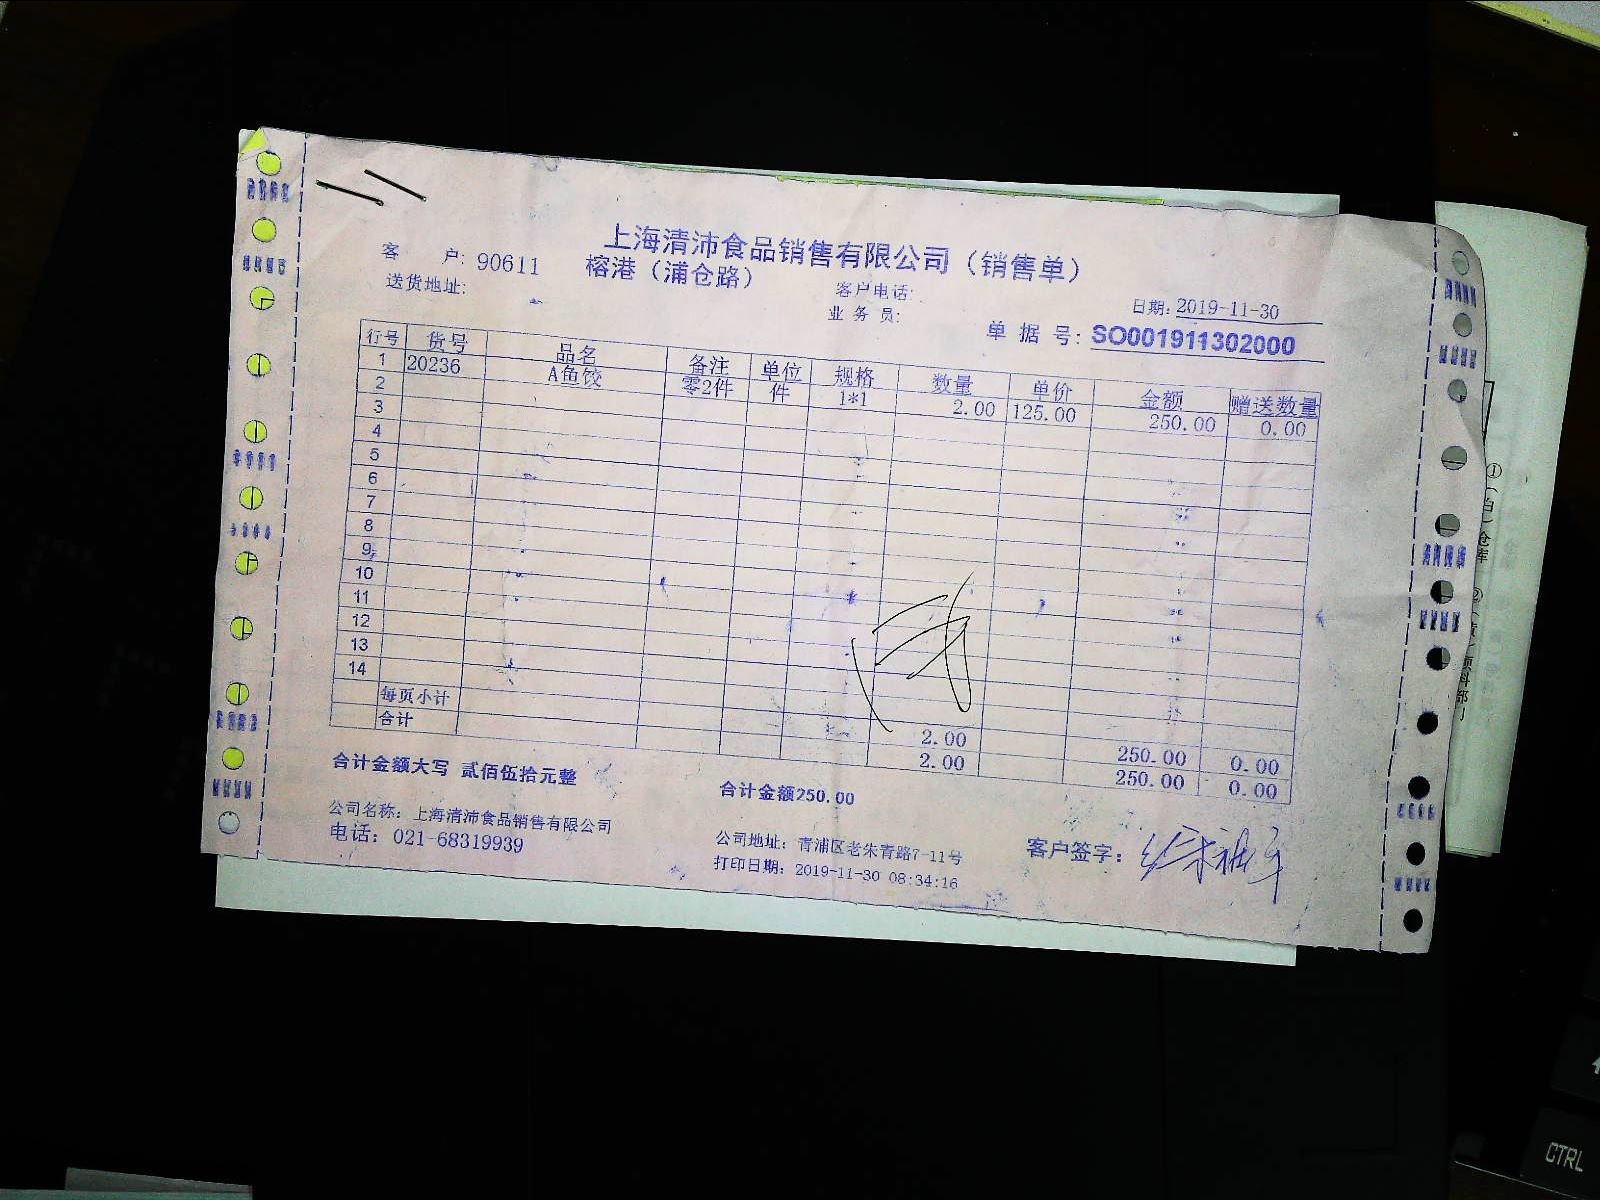 上海清沛食品销售有限公司（销售单）
客 户: 90611 榕港（浦仓路）
送货地址: 客户电话:
业 务 员: 日期: 2019-11-30
单 据 号: SO001911302000
行号 货号 品名 备注 单位 规格 数量 单价 金额 赠送数量
1 20236 A鱼饺 零2件 件 1*1 2.00 125.00 250.00 0.00
2
3
4
5
6
7
8
9
10
11
12
13
14
每页小计 2.00 250.00 0.00
合计 2.00 250.00 0.00
合计金额大写 贰佰伍拾元整 合计金额250.00
公司名称: 上海清沛食品销售有限公司 公司地址: 青浦区老朱青路7-11号 客户签字:
电话: 021-68319939 打印日期: 2019-11-30 08:34:16
CTRL